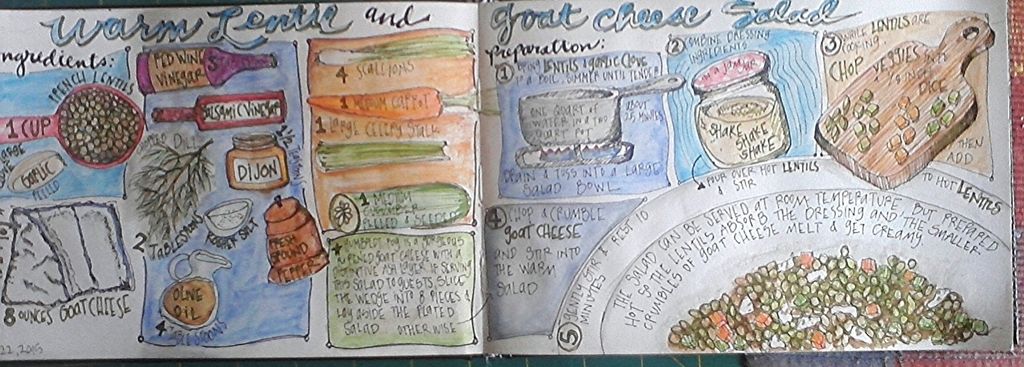 Warm Lentil and
goat cheese Salad
ngredients:
FRENCH LENTILS
1 CUP
LARGE
GARLIC
PEELED
8 OUNCES GOAT CHEESE
22, 2015
RED WINE
VINEGAR
BALSAMIC VINEGAR
DIJON
2
TABLESPOONS
KOSHER SALT
FRESH
GROUND
PEPPER
OLIVE
OIL
4 TABLESPOONS
4 SCALLIONS
1 MEDIUM CARROT
1 LARGE CELERY STALK
1 MEDIUM
PEELED & SEEDED
RIPENED GOAT CHEESE WITH A
DISTINCTIVE ASH LAYER. IF SERVING
THIS SALAD TO GUESTS SLICE
THE WEDGE INTO 8 PIECES &
LAY ASIDE THE PLATED
SALAD OTHERWISE
preparation:
1 BRING LENTILS & GARLIC CLOVE
TO A BOIL. SIMMER UNTIL TENDER
ONE QUART OF
WATER IN A TWO
QUART POT
ABOUT
25 MINUTES
DRAIN & TOSS INTO A LARGE
SALAD BOWL
2 COMBINE DRESSING
INGREDIENTS
in a JAM JAR
SHAKE
SHAKE
SHAKE
POUR OVER HOT LENTILS
& STIR
3 WHILE LENTILS ARE
COOKING,
CHOP VEGGIES INTO
1/4 INCH
DICE
THEN
ADD
TO HOT LENTILS
4 CHOP & CRUMBLE
goat CHEESE
AND STIR INTO
THE WARM
SALAD
5 GENTLY STIR & REST 10
MINUTES
THE SALAD CAN BE SERVED AT ROOM TEMPERATURE, BUT PREPARED
HOT SO THE LENTILS ABSORB THE DRESSING AND THE SMALLER
CRUMBLES OF GOAT CHEESE MELT & GET CREAMY.